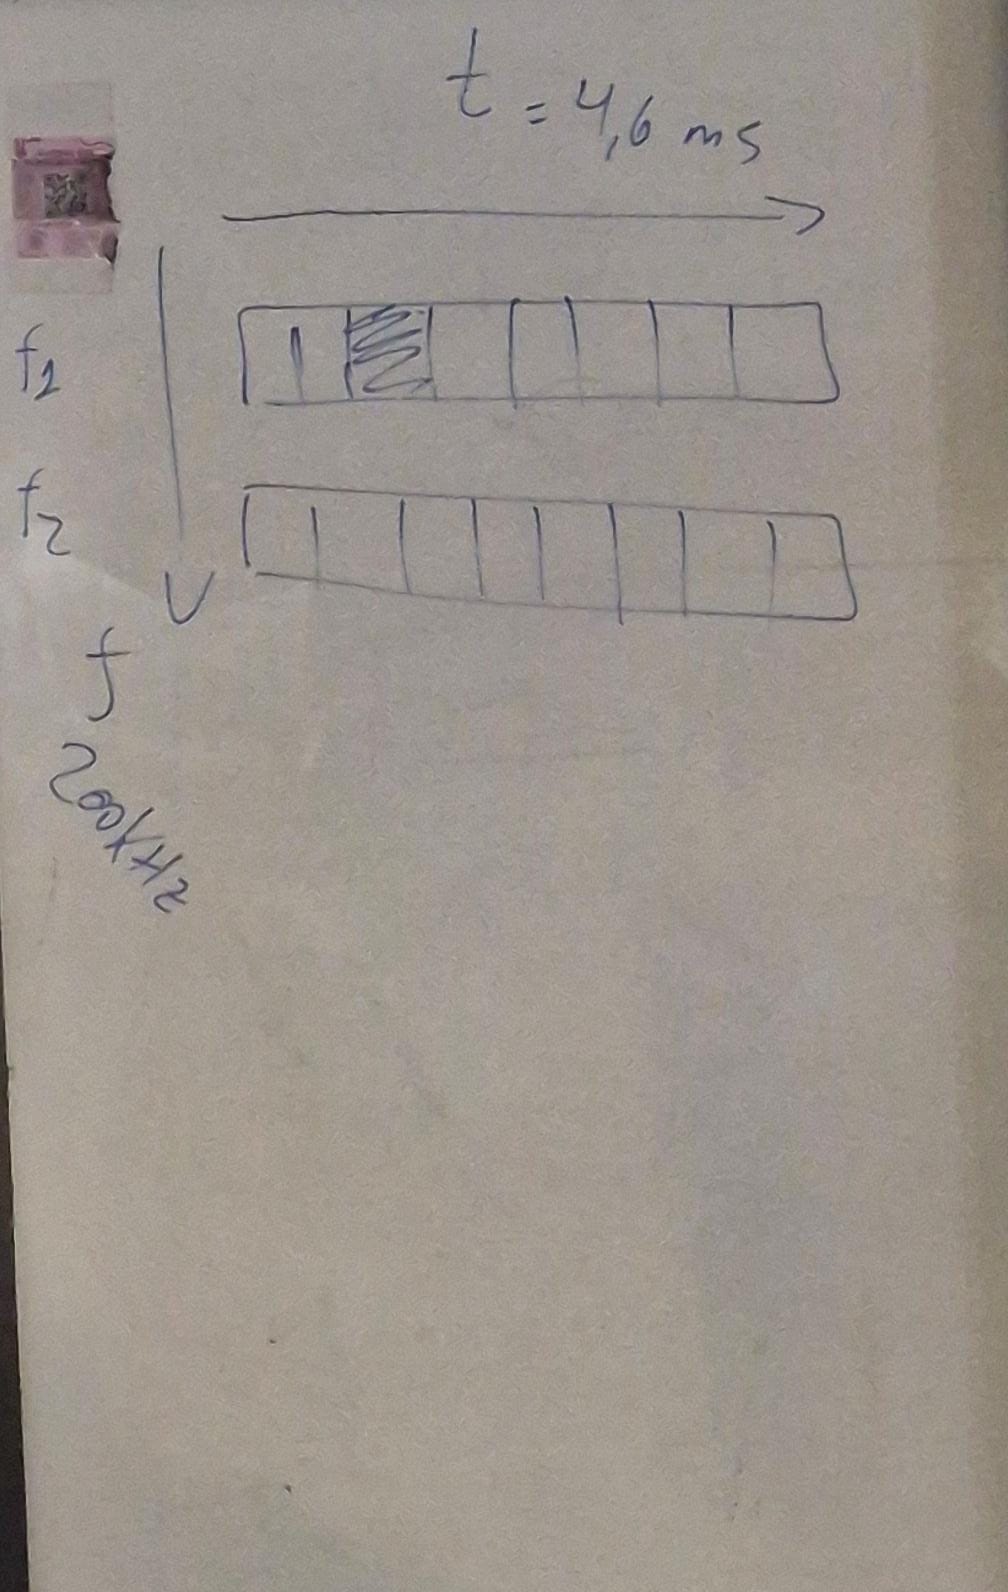 t = 4,6 ms
f1
f2
f
200kHz